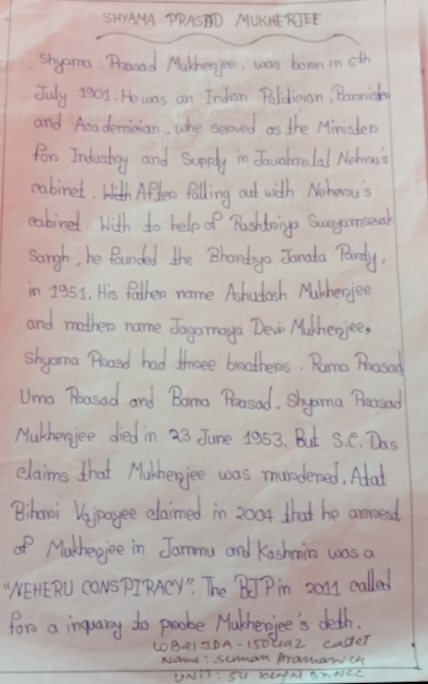 SHYAMA PRASAD MUKHERJEE
Shyama Prasad Mukherjee, was born in 6th
July 1901. He was an Indian Politician, Barrister
and Academician, who served as the Minister
for Industry and Supply in Jawaharlal Nehru's
cabinet. With After falling out with Neheru's
cabinet. With to help of Rashtriya Swayamsevak
Sangh, he founded the Bharatiya Janata Party,
in 1951. His father name Ashutosh Mukherjee
and mother name Jagamaya Devi Mukherjee.
Shyama Prasd had three brothers. Rama Prasad
Uma Prasad and Bama Prasad. Shyama Prasad
Mukherjee died in 23 June 1953. But S.C. Das
claims that Mukherjee was murdered. Atat
Bihari Vajpayee claimed in 2004 that he arrest
of Mukherjee in Jammu and Kashmir was a
"NEHERU CONSPIRACY". The BJP in 2011 called
for a inquary to probe Mukherjee's deth.
CADET
Name: Suman Pramanick
UNIT: 54 Bengal BN NCC